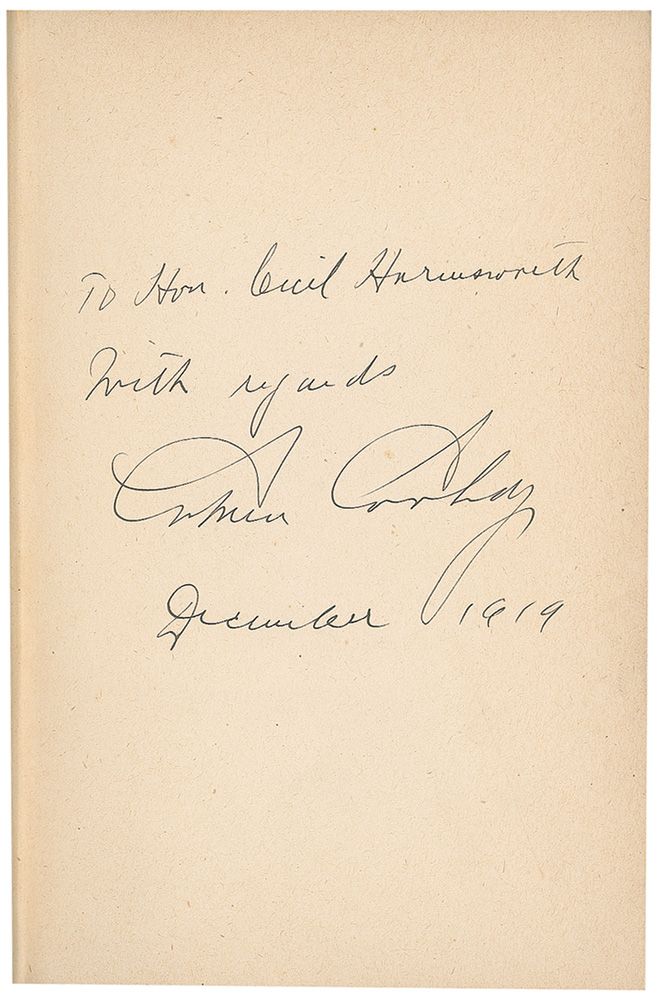 To Hon. Cecil Harmsworth
With regards
December 1919